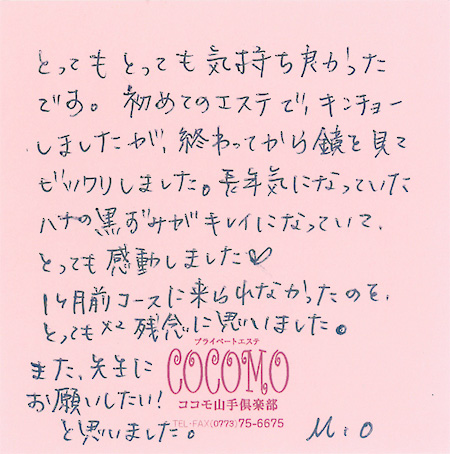 とってもとっても気持ち良かった
です。初めてのエステで、キンチョー
しましたが、終わってから鏡を見て
ビックリしました。長年気になっていた
ハナの黒ずみがキレイになっていて、
とっても感動しました♡
1ヶ月前コースに来られなかったのを、
とても×2残念に思いました。
プライベートエステ
また、先生に
COCOMO
お願いしたい!
ココモ山手倶楽部
TEL・FAX(0773)75-6675
と思いました。 M:O